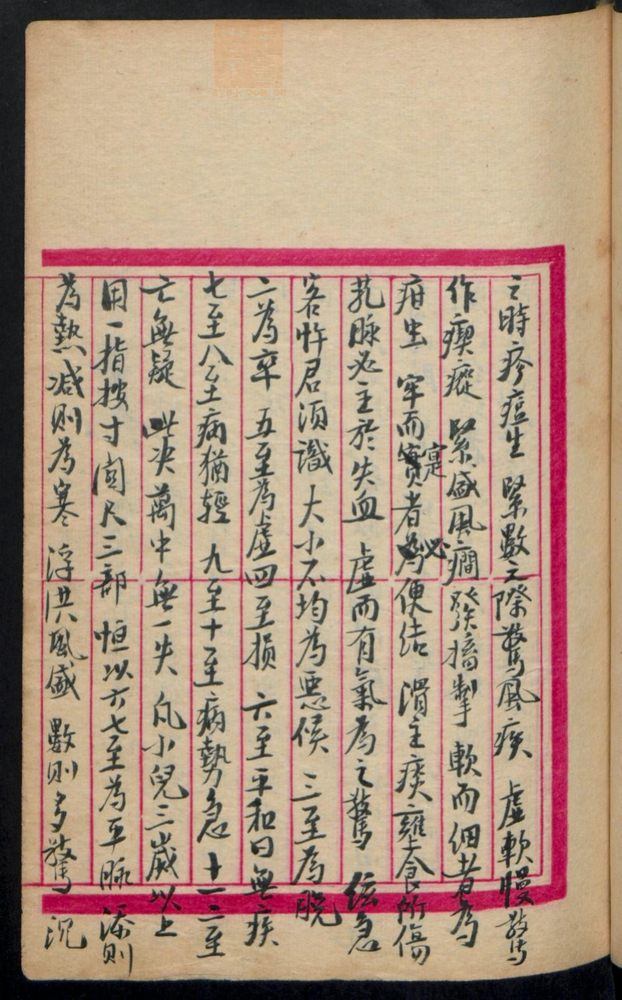 之時疹痘生 緊數之際驚風疾 虛軟慢驚
作瘈瘲 緊盛風癇發搐掣 軟而細者為
疳虫 牢而實者必便结 滑主痰壅食所傷
芤脉必主於失血 虛而有氣為之驚 弦急
客忤君須識 大小不均為惡候 三至為脱
二為卒 五至為虛四至损 六至平和曰無疾
七至八至病猶輕 九至十至病勢急 十一二至
亡無疑 此决萬中無一失 凡小兒三歲以上
用一指按寸関尺三部 恒以六七至為平脉 添則
為熱 减則為寒 浮洪風盛 數則多驚 沉